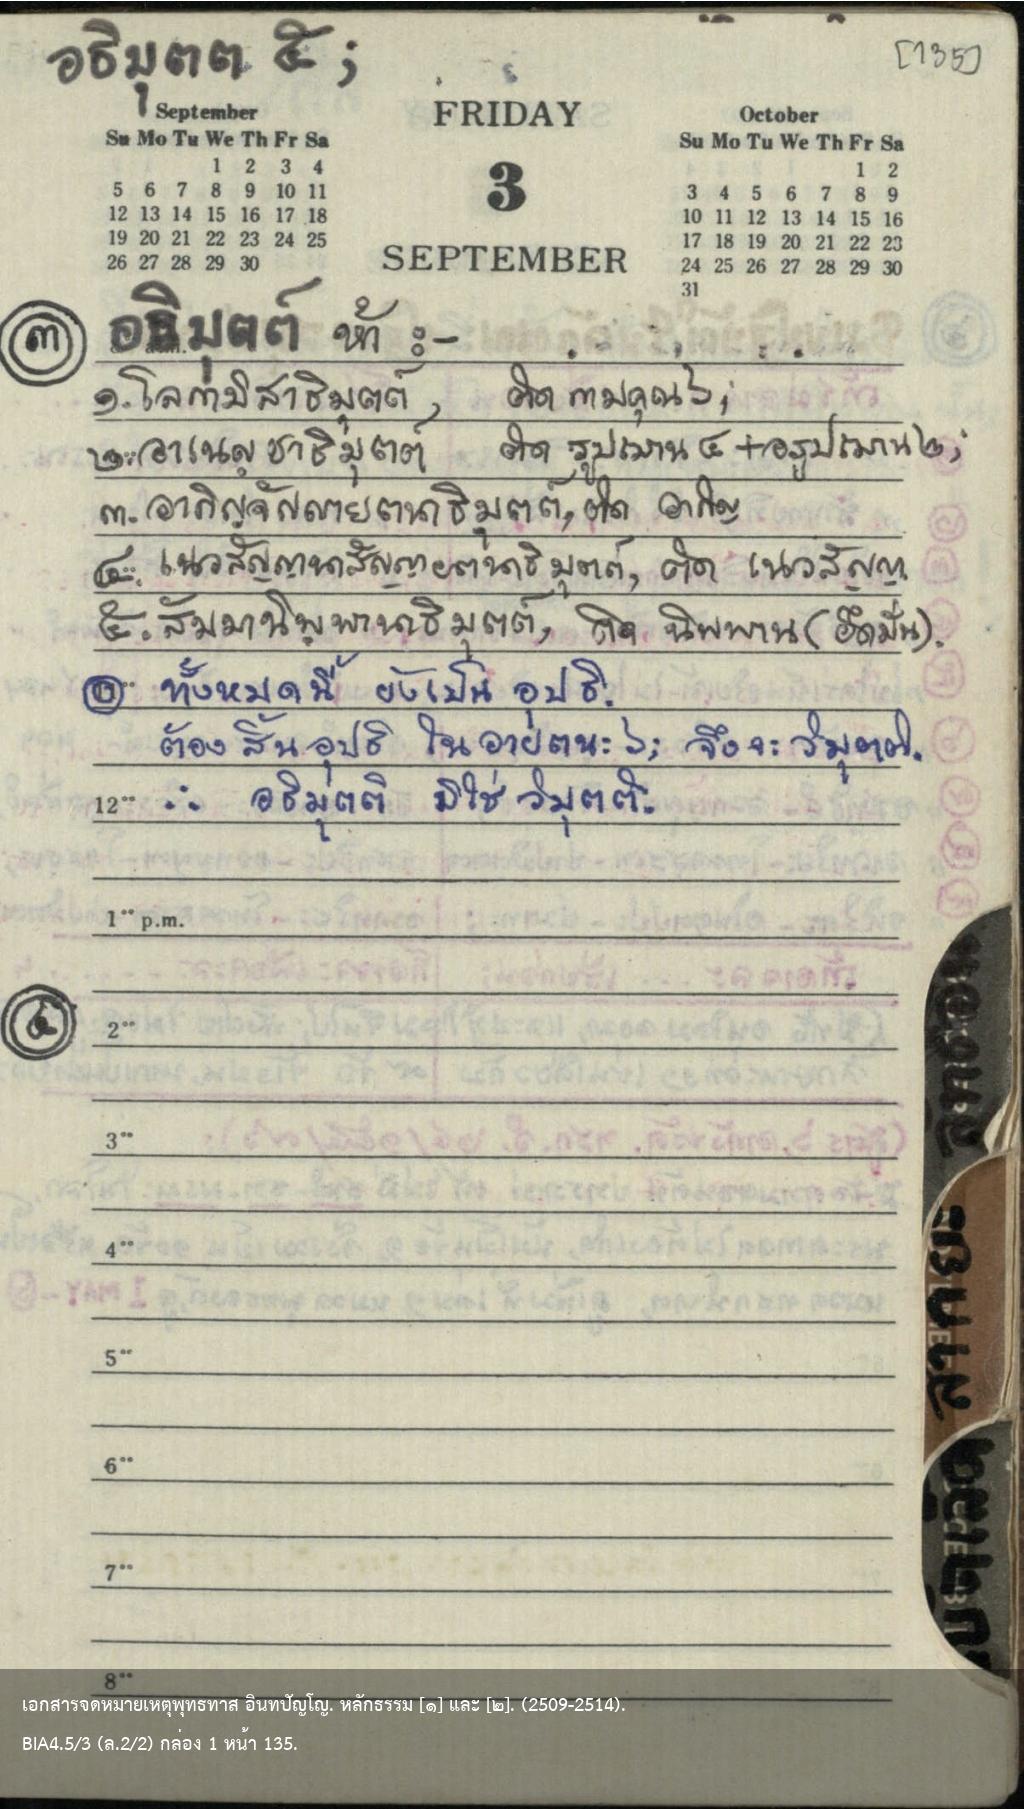 อธิมุตต ๕ ;
[135]
September
Su Mo Tu We Th Fr Sa
1 2 3 4
5 6 7 8 9 10 11
12 13 14 15 16 17 18
19 20 21 22 23 24 25
26 27 28 29 30
FRIDAY
3
SEPTEMBER
October
Su Mo Tu We Th Fr Sa
1 2
3 4 5 6 7 8 9
10 11 12 13 14 15 16
17 18 19 20 21 22 23
24 25 26 27 28 29 30
31
๓ อธิมุตต์ ห้า :-
๑. โลกามิสาธิมุตต์, ติด กามคุณ ๖;
๒. อาเนญชาธิมุตต์ ติด รูปฌาน ๔ + อรูปฌาน ๒;
๓. อากิญจัญญายตนาธิมุตต์, ติด อากิญ
๔. เนวสัญญานาสัญญายตนาธิมุตต์, ติด เนวสัญญา
๕. สัมมานิพพานาธิมุตต์, ติด นิพพาน (ยึดมั่น).
ทั้งหมดนี้ ยังเป็น อุปธิ.
ต้อง สิ้น อุปธิ ใน อายตนะ ๖; จึงจะ วิมุตติ.
12 ∴ อธิมุตติ มิใช่ วิมุตติ.
1 p.m.
๔
2
3
4
5
6
7
8
สายยาน
เอกสารจดหมายเหตุพุทธทาส อินทปัญโญ. หลักธรรม [๑] และ [๒]. (2509-2514).
BIA4.5/3 (ล.2/2) กล่อง 1 หน้า 135.